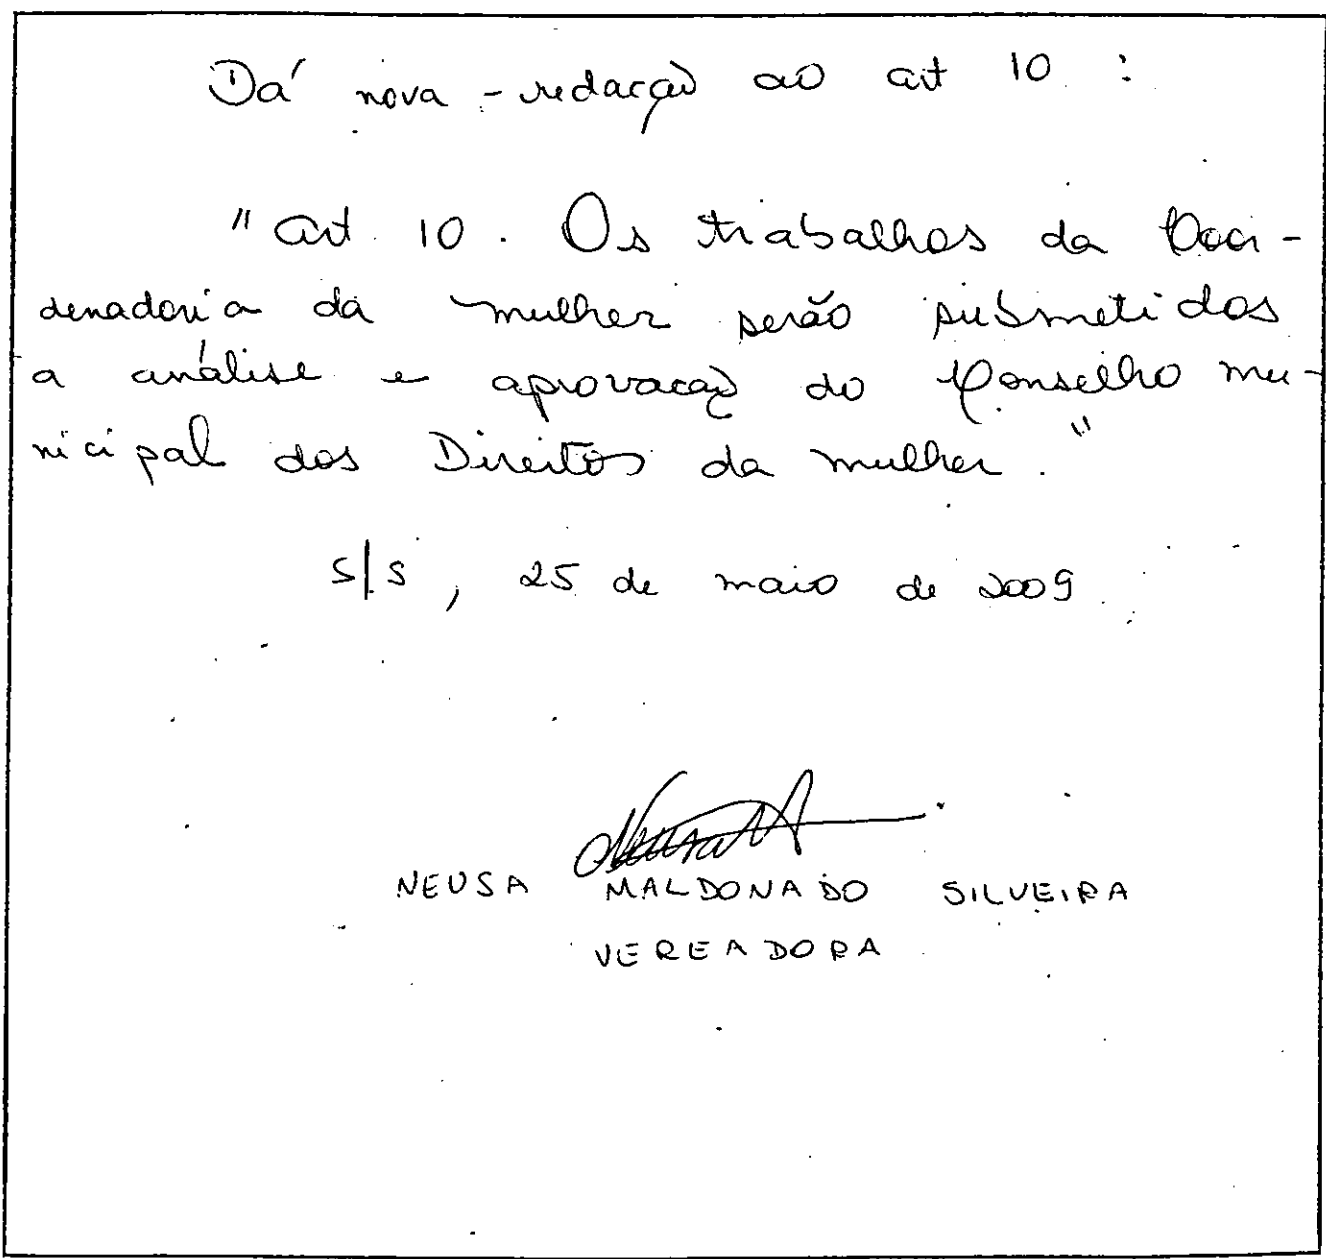 Dá nova redação ao art 10 :
"art. 10. Os trabalhos da Coor-
denadoria da mulher serão submetidos
a análise e aprovação do Conselho mu-
nicipal dos Direitos da mulher."
S/S, 25 de maio de 2009.
NEUSA MALDONADO SILVEIRA
VEREADORA